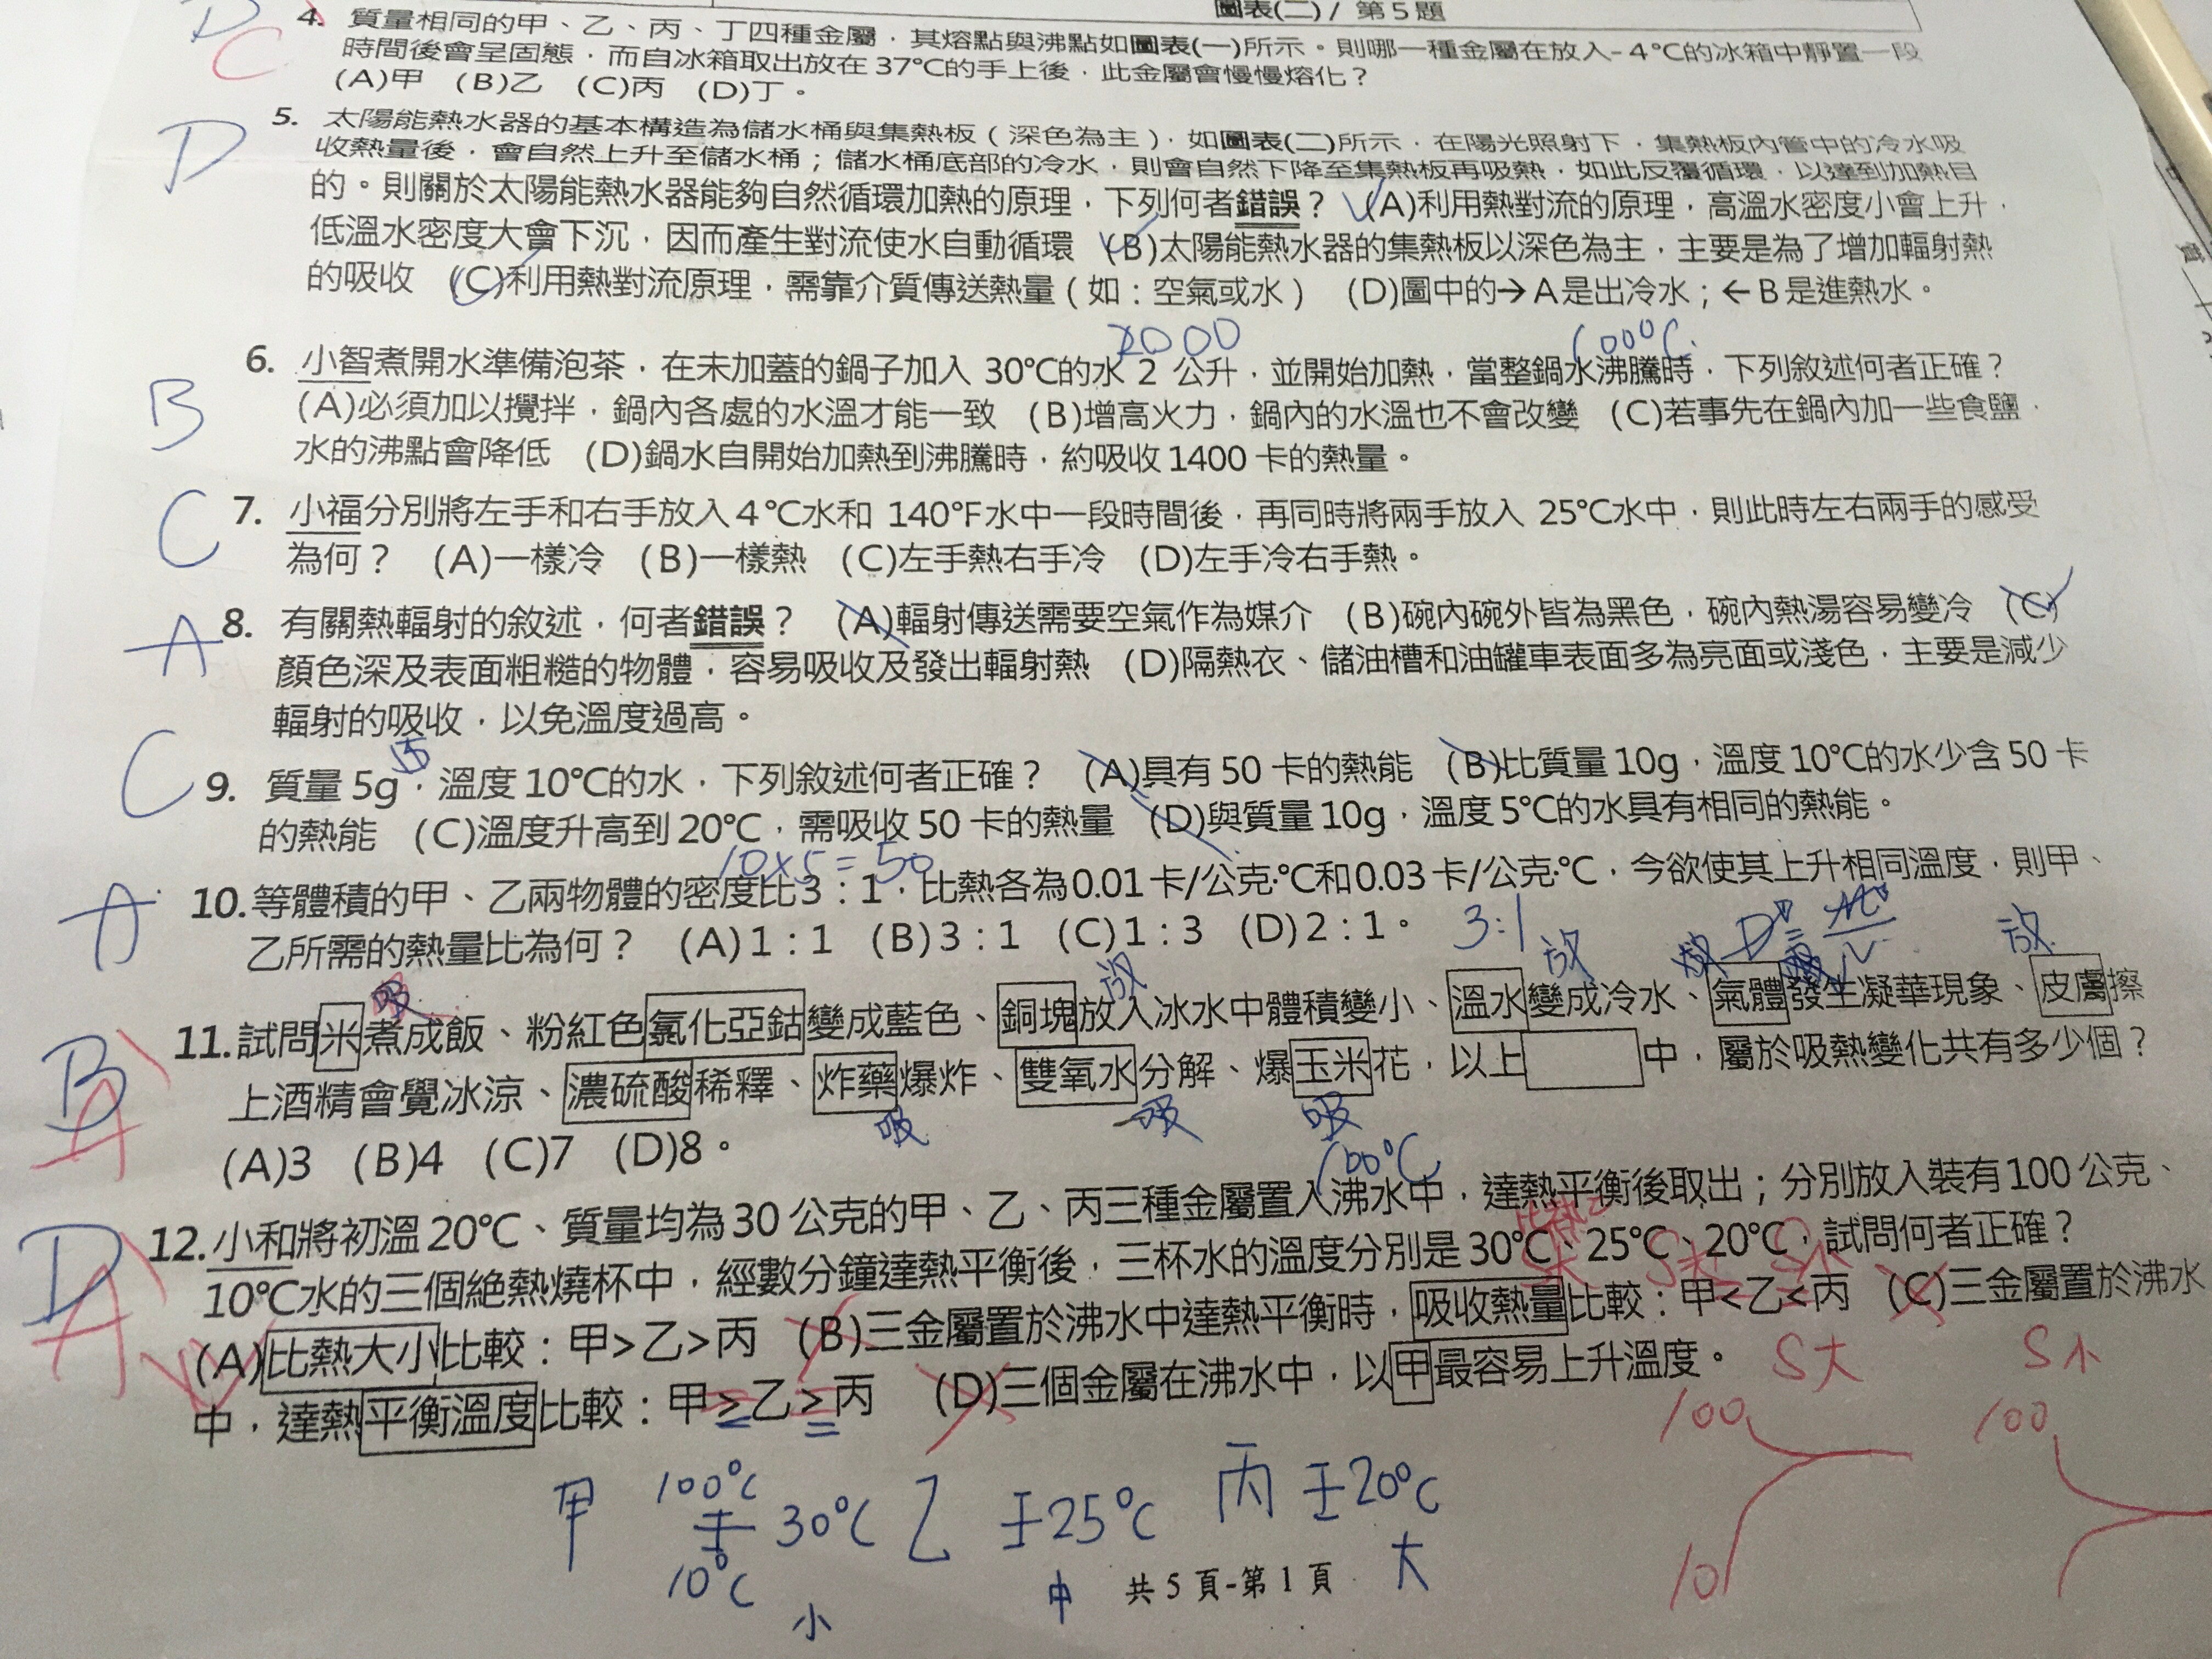 圖表(二) / 第 5 題
D C 4. 質量相同的甲、乙、丙、丁四種金屬，其熔點與沸點如圖表(一)所示。則哪一種金屬在放入-4℃的冰箱中靜置一段
時間後會呈固態，而自冰箱取出放在 37℃的手上後，此金屬會慢慢熔化？
(A)甲 (B)乙 (C)丙 (D)丁。
D 5. 太陽能熱水器的基本構造為儲水桶與集熱板（深色為主），如圖表(二)所示，在陽光照射下，集熱板內管中的冷水吸
收熱量後，會自然上升至儲水桶；儲水桶底部的冷水，則會自然下降至集熱板再吸熱，如此反覆循環，以達到加熱目
的。則關於太陽能熱水器能夠自然循環加熱的原理，下列何者錯誤？ (A)利用熱對流的原理，高溫水密度小會上升，
低溫水密度大會下沉，因而產生對流使水自動循環 (B)太陽能熱水器的集熱板以深色為主，主要是為了增加輻射熱
的吸收 (C)利用熱對流原理，需靠介質傳送熱量（如：空氣或水） (D)圖中的→A是出冷水；←B是進熱水。
2000 100℃
B 6. 小智煮開水準備泡茶，在未加蓋的鍋子加入 30℃的水 2 公升，並開始加熱，當整鍋水沸騰時，下列敘述何者正確？
(A)必須加以攪拌，鍋內各處的水溫才能一致 (B)增高火力，鍋內的水溫也不會改變 (C)若事先在鍋內加一些食鹽，
水的沸點會降低 (D)鍋水自開始加熱到沸騰時，約吸收 1400 卡的熱量。
C 7. 小福分別將左手和右手放入 4℃水和 140℉水中一段時間後，再同時將兩手放入 25℃水中，則此時左右兩手的感受
為何？ (A)一樣冷 (B)一樣熱 (C)左手熱右手冷 (D)左手冷右手熱。
A 8. 有關熱輻射的敘述，何者錯誤？ (A)輻射傳送需要空氣作為媒介 (B)碗內碗外皆為黑色，碗內熱湯容易變冷 (C)
顏色深及表面粗糙的物體，容易吸收及發出輻射熱 (D)隔熱衣、儲油槽和油罐車表面多為亮面或淺色，主要是減少
輻射的吸收，以免溫度過高。
C 9. 質量 5g，溫度 10℃的水，下列敘述何者正確？ (A)具有 50 卡的熱能 (B)比質量 10g，溫度 10℃的水少含 50 卡
的熱能 (C)溫度升高到 20℃，需吸收 50 卡的熱量 (D)與質量 10g，溫度 5℃的水具有相同的熱能。
10×5=50
A 10. 等體積的甲、乙兩物體的密度比 3：1，比熱各為 0.01 卡/公克·℃和 0.03 卡/公克·℃，今欲使其上升相同溫度，則甲、
乙所需的熱量比為何？ (A)1：1 (B)3：1 (C)1：3 (D)2：1。 3:1 D=M/V
吸 放 放 放 放
B A 11. 試問米煮成飯、粉紅色氯化亞鈷變成藍色、銅塊放入冰水中體積變小、溫水變成冷水、氣體發生凝華現象、皮膚擦
上酒精會覺冰涼、濃硫酸稀釋、炸藥爆炸、雙氧水分解、爆玉米花，以上 中，屬於吸熱變化共有多少個？
吸 吸 吸
(A)3 (B)4 (C)7 (D)8。
100℃
D A 12. 小和將初溫 20℃、質量均為 30 公克的甲、乙、丙三種金屬置入沸水中，達熱平衡後取出；分別放入裝有 100 公克、
10℃水的三個絕熱燒杯中，經數分鐘達熱平衡後，三杯水的溫度分別是 30℃、25℃、20℃，試問何者正確？
S大 S大 S小
(A)比熱大小比較：甲>乙>丙 (B)三金屬置於沸水中達熱平衡時，吸收熱量比較：甲<乙<丙 (C)三金屬置於沸水
中，達熱平衡溫度比較：甲>乙>丙 (D)三個金屬在沸水中，以甲最容易上升溫度。
S大 S小
100 100
甲 100℃ 30℃ 乙 25℃ 丙 20℃
10℃ 10
小 中 大
共 5 頁-第 1 頁